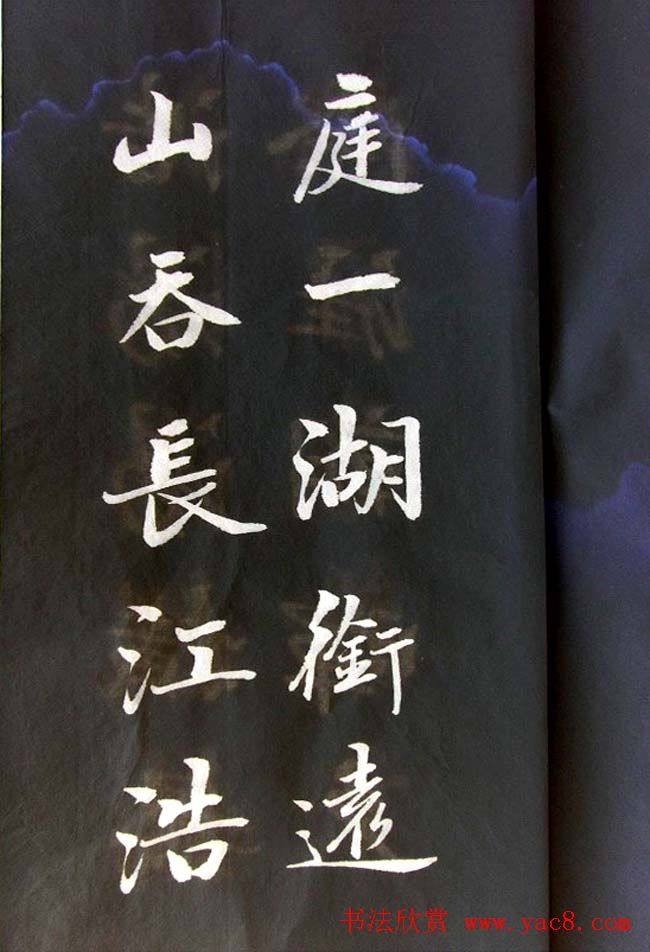 庭一湖銜遠
山吞長江浩
书法欣赏 www.yac8.com